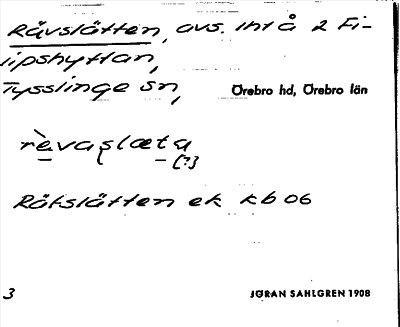 Rävslätten, avs. int å 2 Fi-
lipshyttan,
Tysslinge sn,
Örebro hd, Örebro län
rèvaslæta
(?)
Räfslätten ek kb 06
3
JÖRAN SAHLGREN 1908